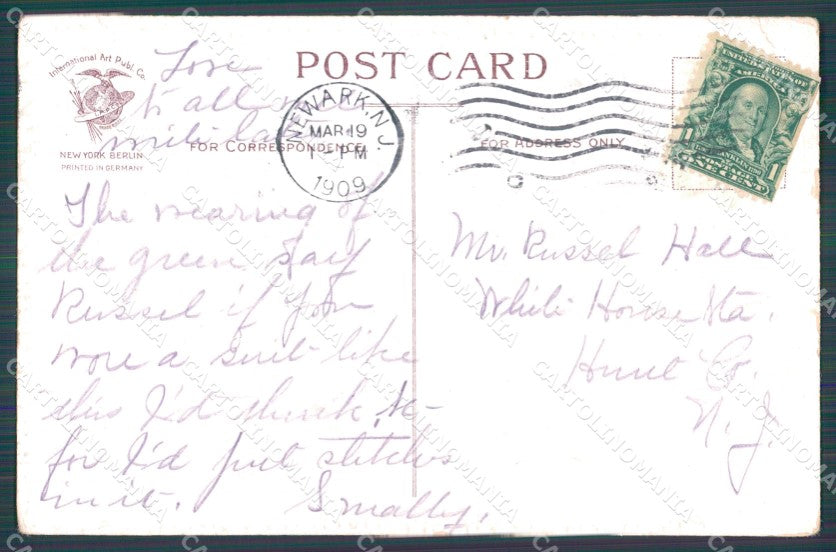 POST CARD
International Art Publ. Co.
NEW YORK BERLIN
PRINTED IN GERMANY
FOR CORRESPONDENCE
FOR ADDRESS ONLY
NEWARK, N.J.
MAR 19
1 PM
1909
UNITED STATES OF AMERICA
FRANKLIN
1 1
ONE CENT
Love
to all
The wearing of
the green Say
Russel if you
wore a suit like
this I'd
for I'd put stitches
in it. Smally.
Mr. Russel Hall
White House Sta.
Hunt Co.
N. J.
CARTOLINOMANIA